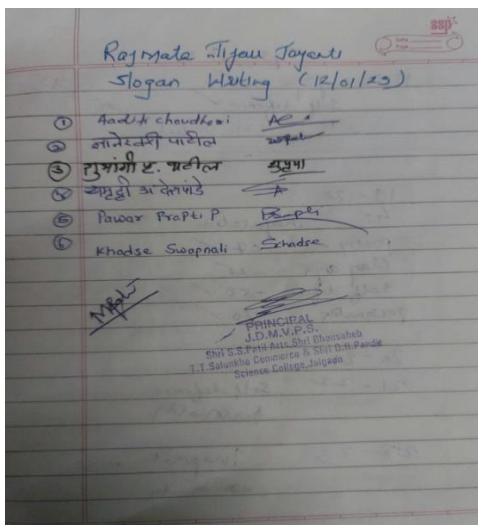 ssp
Rajmata Jijau Jayanti
Slogan Writing (12/01/23)
① Aaditi choudhari
② ज्ञानेश्वरी पाटील
③ शुभांगी ए. पाटील
④ समृद्धी अ देशपांडे
⑤ Pawar Prapti P.
⑥ Khadse Swapnali Skhadse
PRINCIPAL
J.D.M.V.P.S.
Shri S.S.Patil Arts,Shri Bhausaheb
T.T.Salunkhe Commerce & Shri G.R.Pandit
Science College,Jalgaon